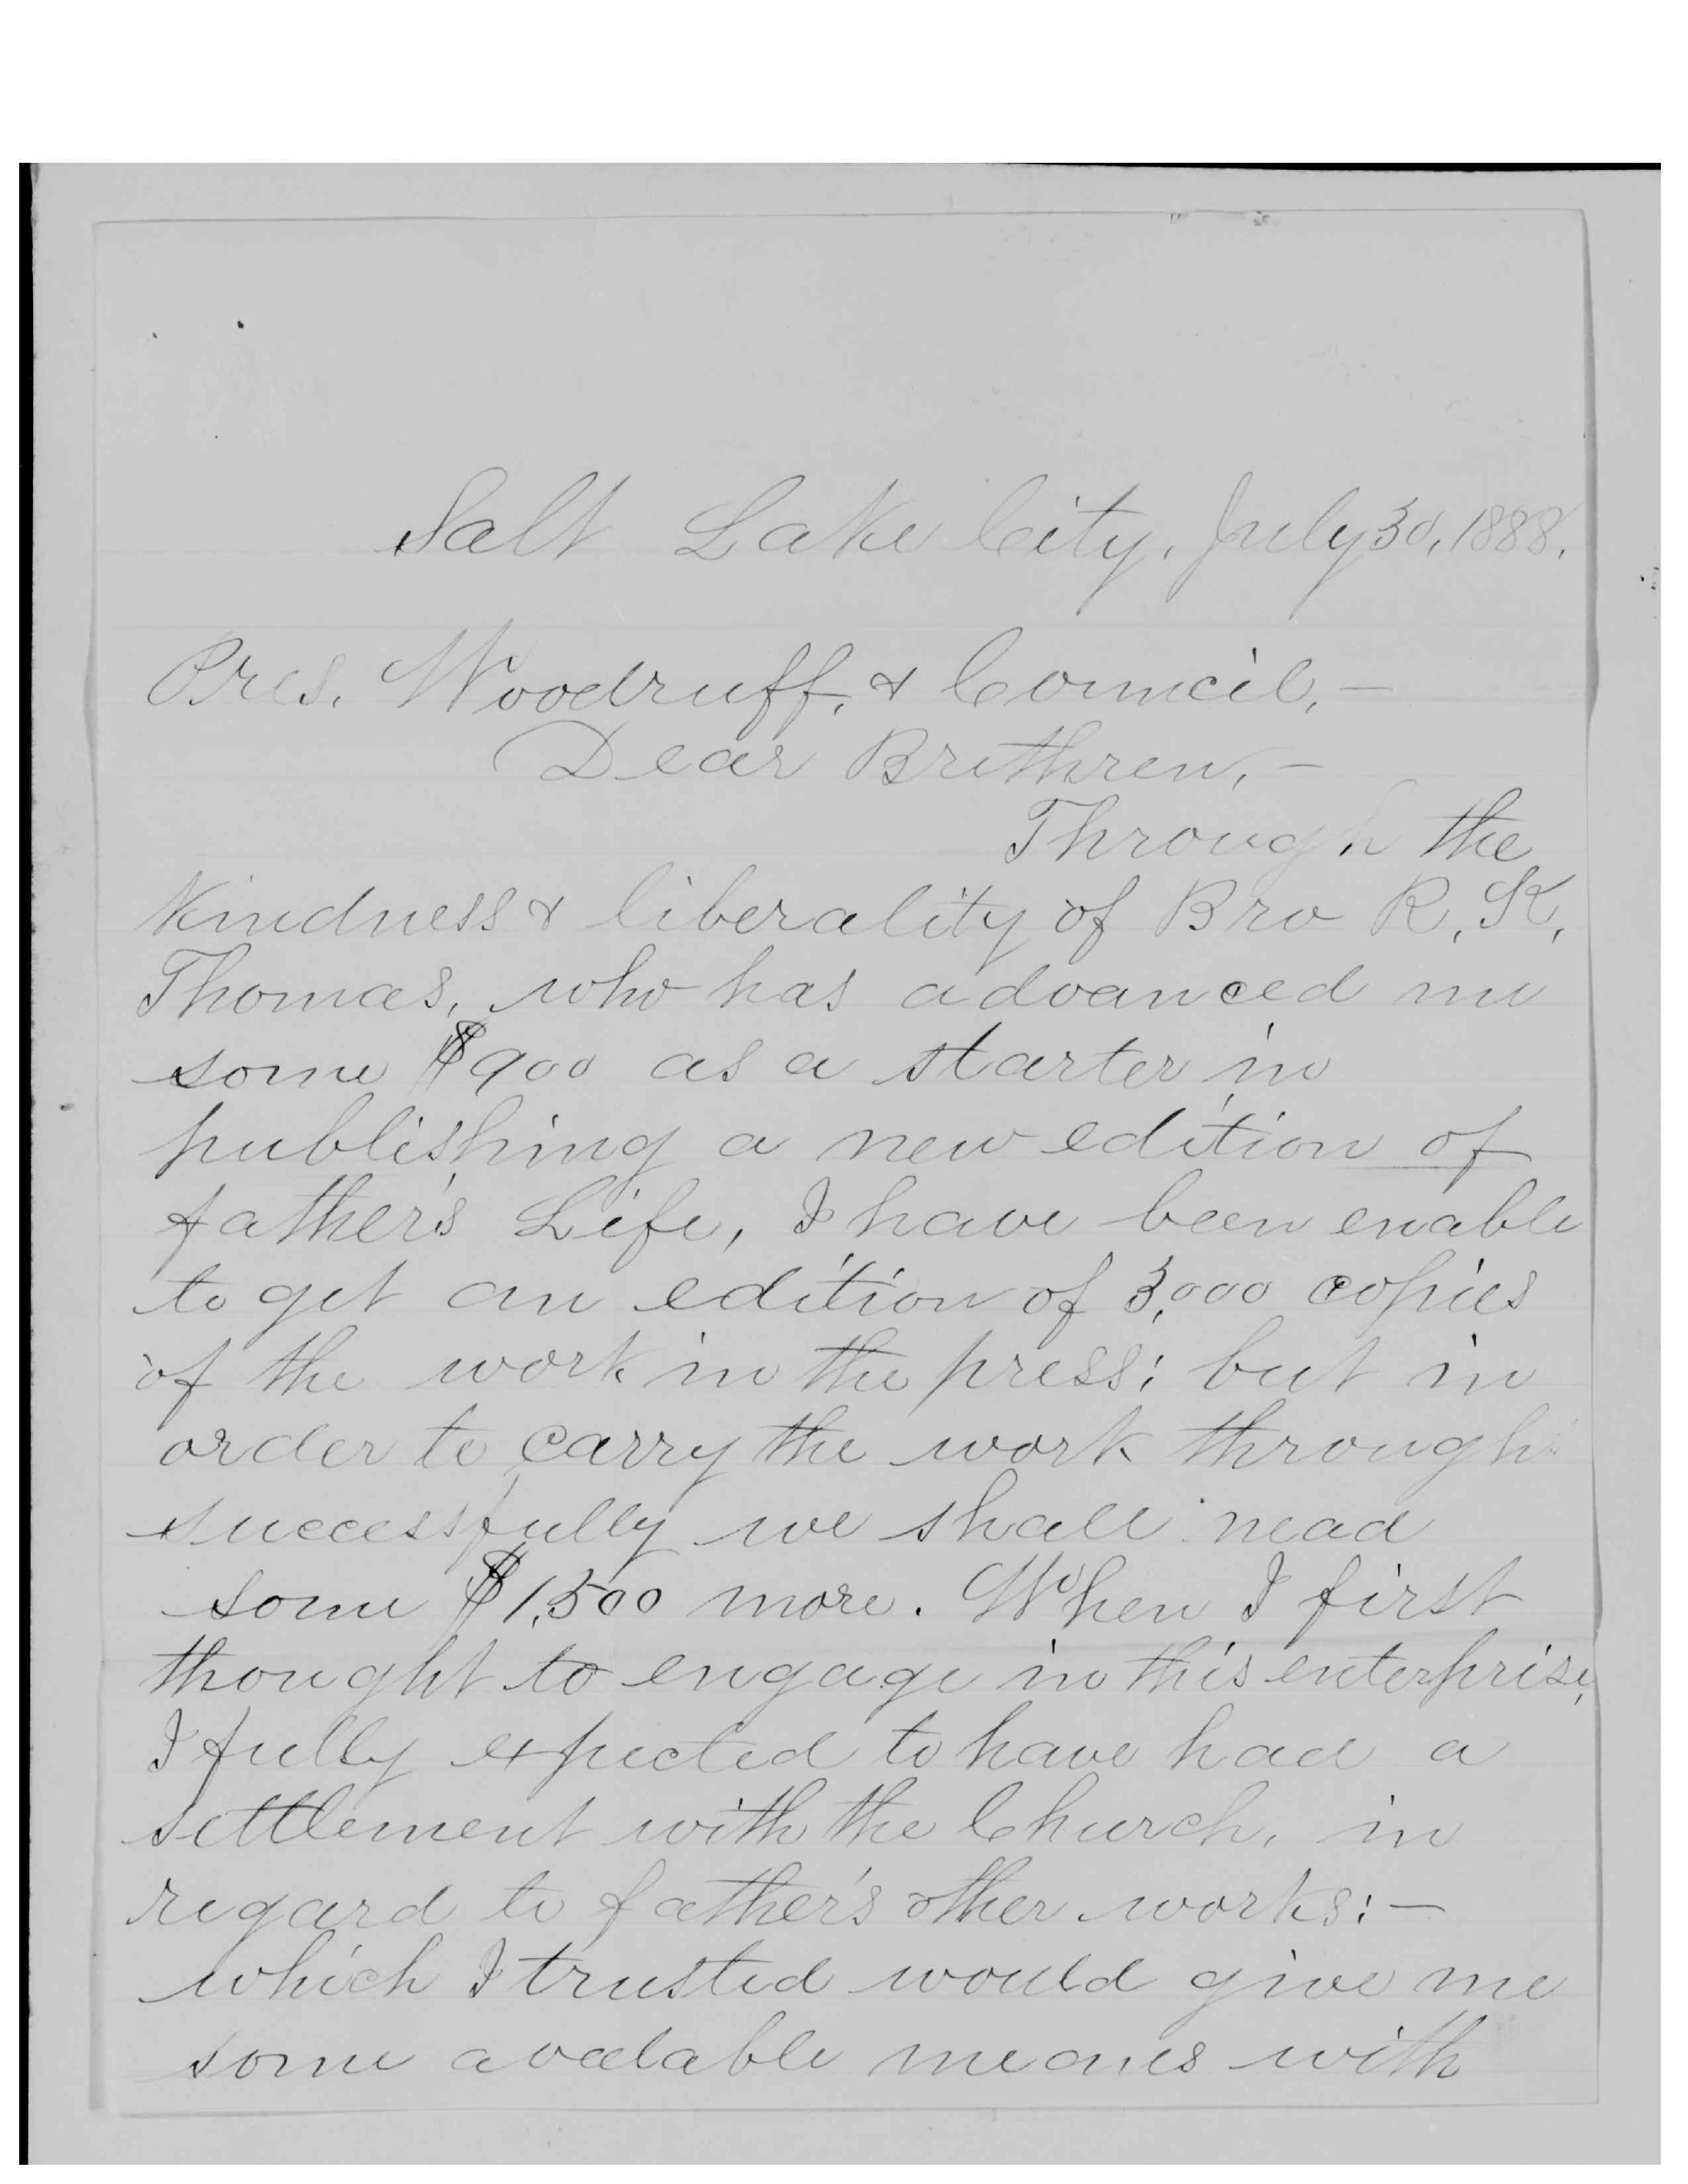 Salt Lake City, July 30, 1888.
Pres. Woodruff, & Council,—
Dear Brethren,—
Through the
kindness & liberality of Bro R. K.
Thomas, who has advanced me
some $900 as a starter in
publishing a new edition of
father's Life, I have been enable
to get an edition of 3,000 copies
of the work in the press; but in
order to carry the work through
successfully we shall nead
some $1,500 more. When I first
thought to engage in this enterprise,
I fully expected to have had a
settlement with the Church, in
regard to father's other works:—
which I trusted would give me
some avalable means with